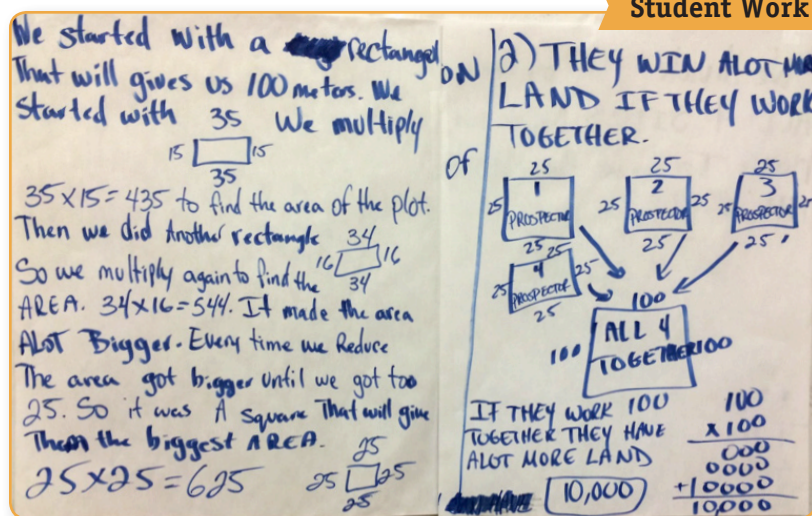 Student Work
We started with a rectangel
That will gives us 100 meters. We
Started with 35 We multiply
15 15
35
35x15=435 to find the area of the plot.
Then we did Another rectangle 34
So we multiply again to find the 16 16
34
AREA. 34x16=544. It made the area
ALOT Bigger. Every time we Reduce
The area got bigger until we got too
25. So it was A square That will give
Them the biggest AREA.
25
25x25=625 25 25
25
ON
of
2) THEY WIN ALOT
LAND IF THEY WORK
TOGETHER.
25 25 25
1 2 3
25 PROSPECTOR 25 PROSPECTOR 25 25 PROSPECTOR
25 25 25
25
4
25 PROSPECTOR 25
25
100
ALL 4
100 TOGETHER 100
IF THEY WORK 100
TOGETHER THEY HAVE
ALOT MORE LAND
10,000
100
x100
000
0000
+10000
10,000